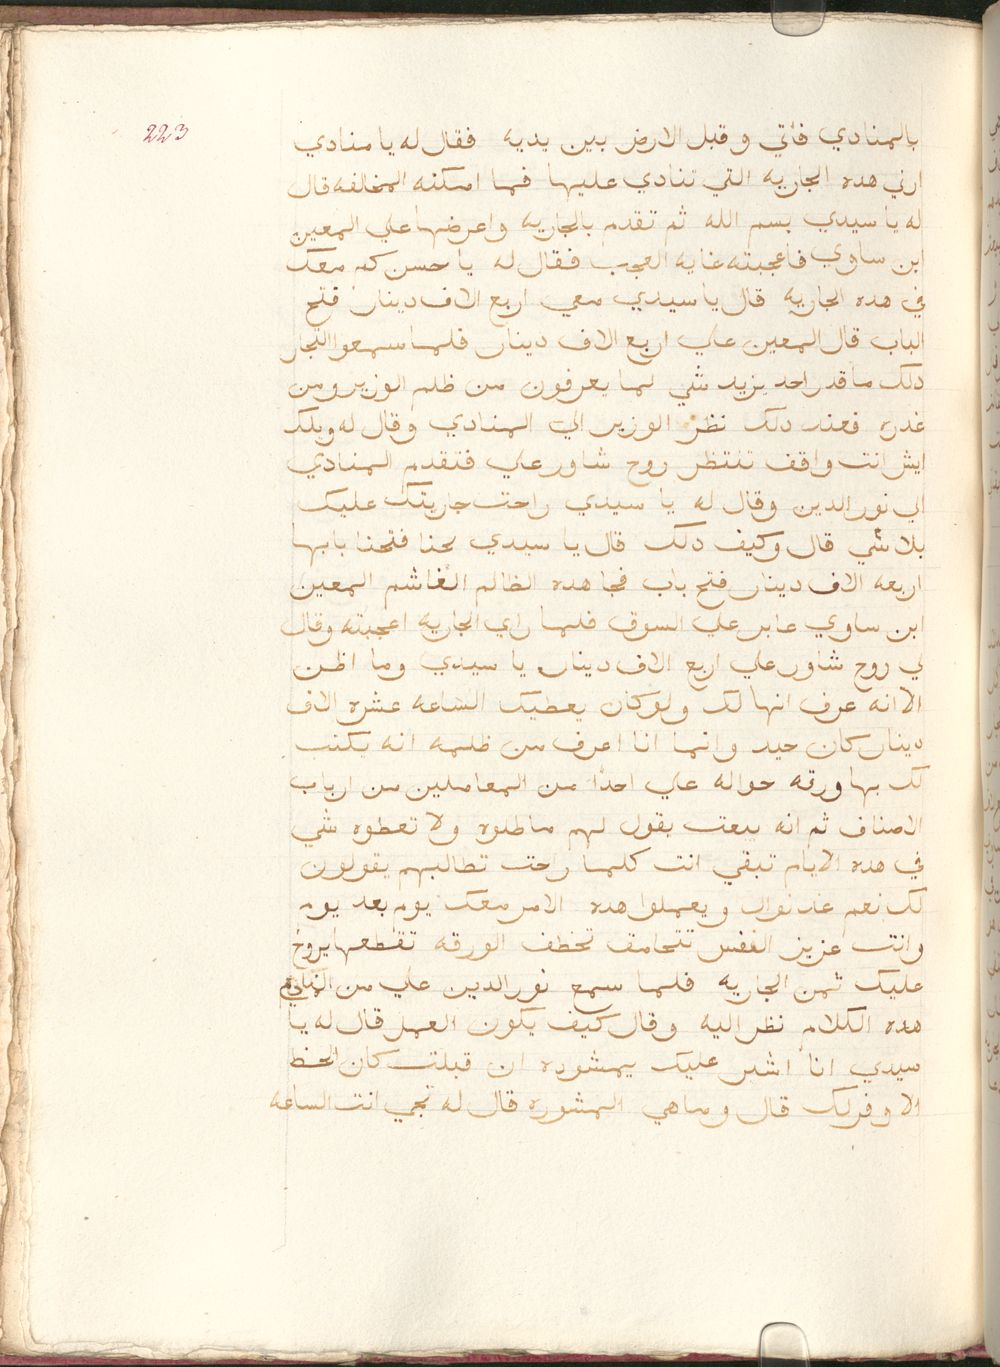 223
بالمنادي فاتي وقبل الارض بين يديه فقال له يا منادي
ارني هده الجاريه التي تنادي عليها فما امكنه المخالفه قال
له يا سيدي بسم الله ثم تقدم بالجاريه واعرضها علي المعين
ابن ساوي فاعجبته غايه العجب فقال له يا حسن كم معك
في هده الجاريه قال يا سيدي معي اربع الاف دينار فتح
الباب قال المعين علي اربع الاف دينار فلما سمعوا التجار
دلك ما قدر احد يزيد شي لما يعرفون من ظلم الوزير ومن
غدره فعند دلك نظر الوزير الي المنادي وقال له ويلك
ايش انت واقف تنتظر روح شاور علي فتقدم المنادي
الي نور الدين وقال له يا سيدي راحت جاريتك عليك
بلا شي قال وكيف دلك قال يا سيدي نحنا فتحنا بابها
اربعه الاف دينار فتح باب فجا هده الظالم الغاشم المعين
ابن ساوي عابر علي السوق فلما راي الجاريه اعجبته وقال
لي روح شاور علي اربع الاف دينار يا سيدي وما اظن
الا انه عرف انها لك ولو كان يعطيك الساعه عشره الاف
دينار كان جيد وانما انا اعرف من ظلمه انه يكتب
لك بها ورقه حواله علي احدا من المعاملين من ارباب
الاصناف ثم انه يبعت يقول لهم ماطلوه ولا تعطوه شي
في هده الايام تبقي انت كلما رحت تطالبهم يقولون
لك نعم غد نوال ويعملوا هده الامر معك يوم بعد يوم
وانت عزيز النفس تتحامق تخطف الورقه تقطعها يروح
عليك ثمن الجاريه فلما سمع نور الدين علي من
هده الكلام نظر اليه وقال كيف يكون العمل قال له يا
سيدي انا اشير عليك بمشوره ان قبلت كان الحظ
الاوفر لك قال وما هي المشوره قال له تجي انت الساعه